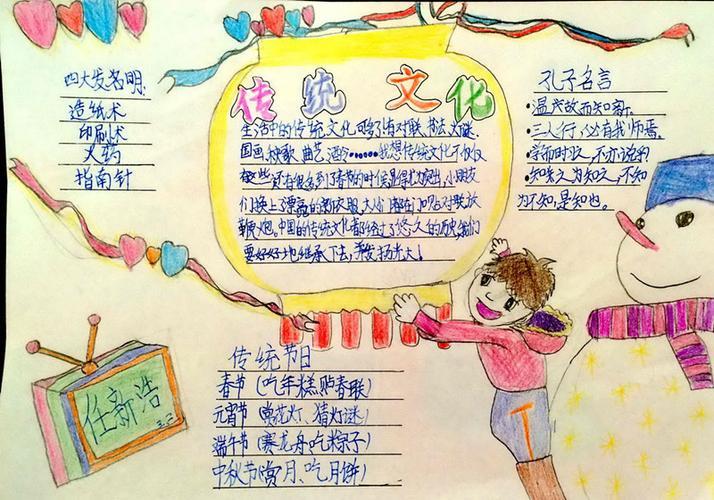 四大发名明:
造纸术
印刷术
火药
指南针
传统文化
生活中的传统文化可多了有对联、书法、灯谜、
国画、秧歌、曲艺、酒令……我想传统文化不仅仅
有这些还有很多到了春节的时候显得尤为突出,小朋友
们换上了漂亮的新衣服,大人们都在门口贴对联放
鞭炮。中国的传统文化都经过了悠久的历史,我们
要好好地继承下去,并发扬光大!
孔子名言
•温故而知新。
•三人行,必有我师焉。
•学而时习,不亦说乎
•知之为知之,不知
为不知,是知也。
任新浩
3.2
传统节日
春节(吃年糕贴春联)
元宵节(赏花灯、猜灯谜)
端午节(赛龙舟、吃粽子)
中秋节(赏月、吃月饼)